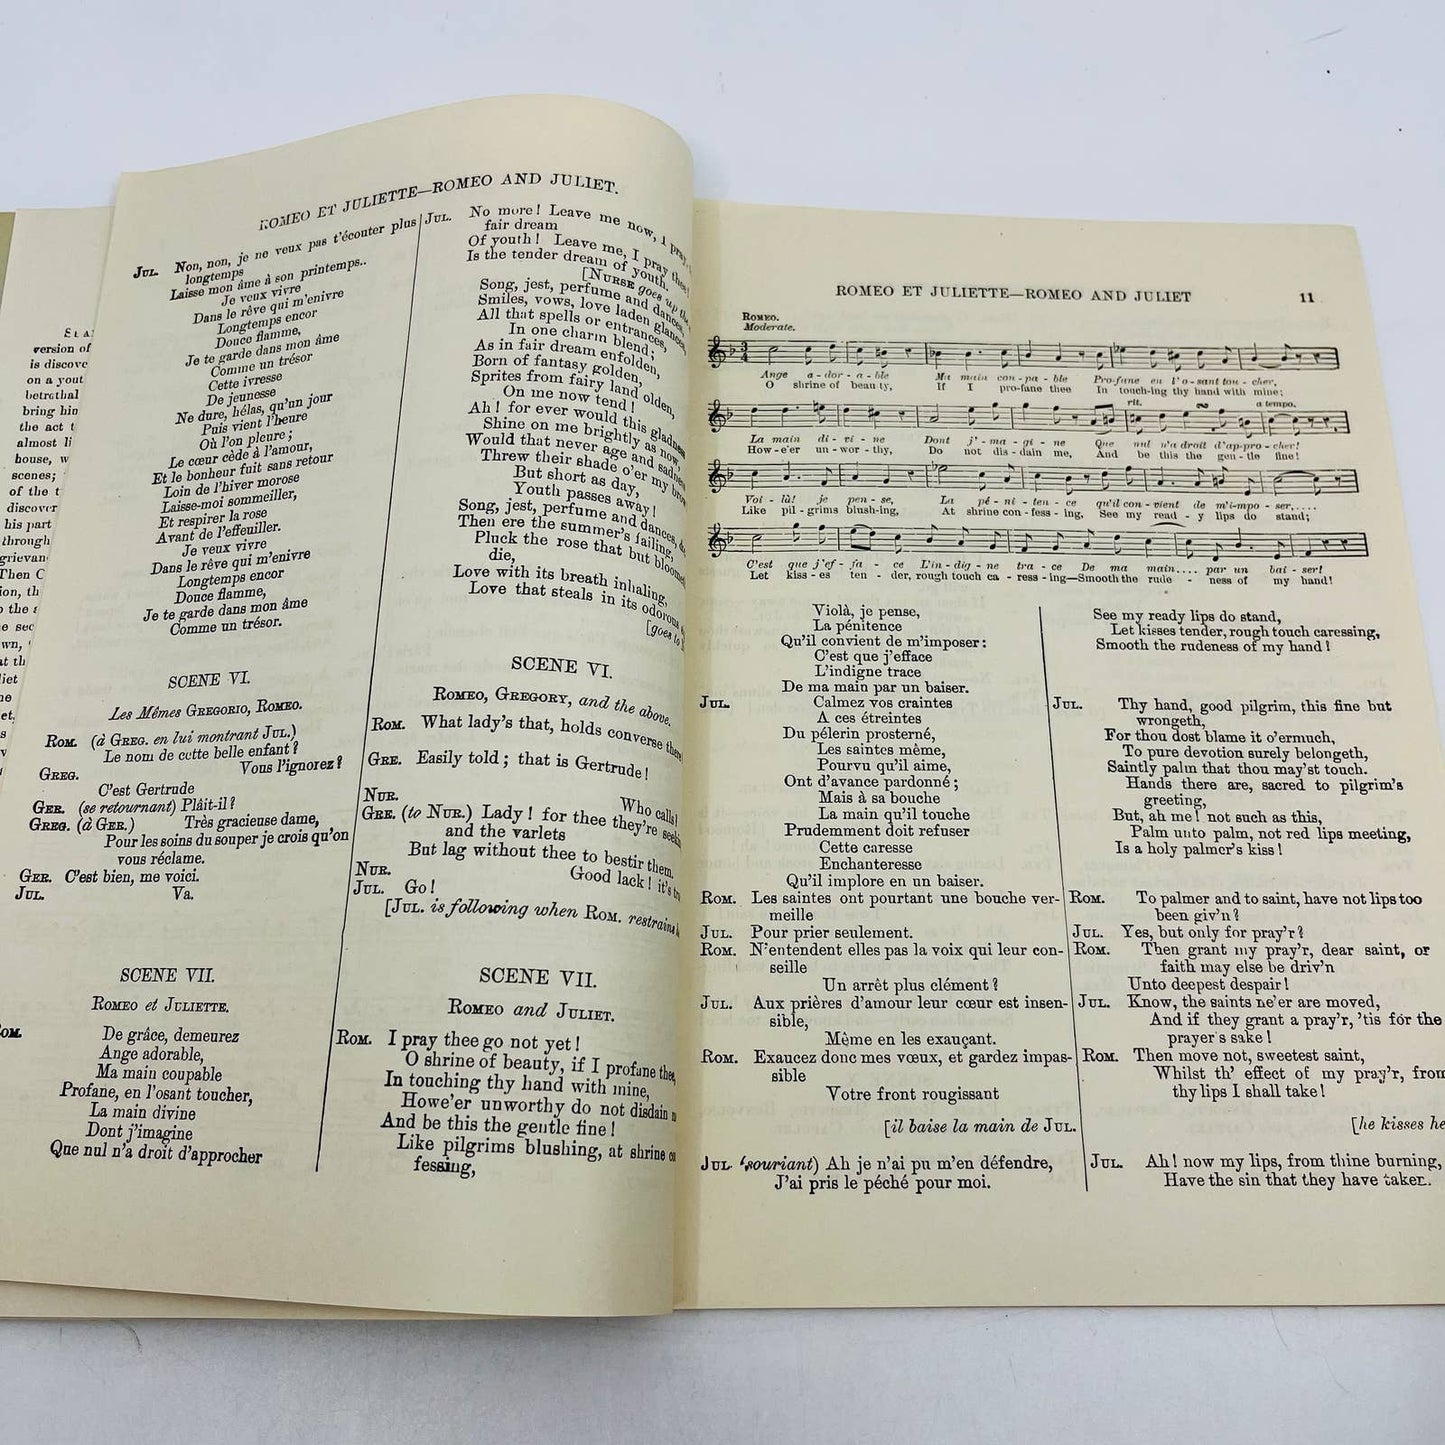 ROMEO ET JULIETTE—ROMEO AND JULIET.
JUL. Non, non, je ne veux pas t'écouter plus
longtemps
Laisse mon âme à son printemps..
Je veux vivre
Dans le rêve qui m'enivre
Longtemps encor
Douce flamme,
Je te garde dans mon âme
Comme un trésor
Cette ivresse
De jeunesse
Ne dure, hélas, qu'un jour
Puis vient l'heure
Où l'on pleure;
Le cœur cède à l'amour,
Et le bonheur fuit sans retour
Loin de l'hiver morose
Laisse-moi sommeiller,
Et respirer la rose
Avant de l'effeuiller.
Je veux vivre
Dans le rêve qui m'enivre
Longtemps encor
Douce flamme,
Je te garde dans mon âme
Comme un trésor.
SCENE VI.
Les Mêmes GREGORIO, ROMEO.
ROM. (à GREG. en lui montrant JUL.)
Le nom de cette belle enfant?
GREG. Vous l'ignorez?
C'est Gertrude
GER. (se retournant) Plâit-il?
GREG. (à GER.) Très gracieuse dame,
Pour les soins du souper je crois qu'on
vous réclame.
GER. C'est bien, me voici.
JUL. Va.
SCENE VII.
ROMEO et JULIETTE.
ROM. De grâce, demeurez
Ange adorable,
Ma main coupable
Profane, en l'osant toucher,
La main divine
Dont j'imagine
Que nul n'a droit d'approcher
JUL. No more! Leave me now, I pray,
fair dream
Of youth! Leave me, I pray thee!
Is the tender dream of youth.
[NURSE goes up the
Song, jest, perfume and dances,
Smiles, vows, love laden glances,
All that spells or entrances,
In one charm blend;
As in fair dream enfolden,
Born of fantasy golden,
Sprites from fairy land olden,
On me now tend!
Ah! for ever would this gladness
Shine on me brightly as now,
Would that never age and sadness
Threw their shade o'er my brow
But short as day,
Youth passes away!
Song, jest, perfume and dances, &c.
Then ere the summer's failing,
Pluck the rose that but bloomed
die,
Love with its breath inhaling,
Love that steals in its odorous
[goes to
SCENE VI.
ROMEO, GREGORY, and the above.
ROM. What lady's that, holds converse there
GRE. Easily told; that is Gertrude!
NUR. Who calls!
GRE. (to NUR.) Lady! for thee they're
and the varlets
But lag without thee to bestir them.
NUR. Good lack! it's
JUL. Go!
[JUL. is following when ROM. restrains
SCENE VII.
ROMEO and JULIET.
ROM. I pray thee go not yet!
O shrine of beauty, if I profane thee,
In touching thy hand with mine,
Howe'er unworthy do not disdain
And be this the gentle fine!
Like pilgrims blushing, at shrine
fessing,
version of
is discove
on a yout
betrothal
bring him
the act t
almost li
house, w
scenes;
of the t
discover
his part
through
grievan
Then C
ROMEO ET JULIETTE—ROMEO AND JULIET 11
ROMEO.
Moderate.
Ange a-dor-a-ble Ma main con-pa-ble Pro-fane en l'o-sant tou-cher,
O shrine of beau-ty, If I pro-fane thee In touch-ing thy hand with mine;
rit. a tempo.
La main di-vi-ne Dont j'-ma-gi-ne Que nul n'a droit d'ap-pro-cher!
How-e'er un-wor-thy, Do not dis-dain me, And be this the gen-tle fine!
Voi-là! je pen-se, La pé-ni-ten-ce qu'il con-vient de m'im-po-ser,....
Like pil-grims blush-ing, At shrine con-fess-ing, See my read-y lips do stand;
C'est que j'ef-fa-ce L'in-dig-ne tra-ce De ma main.... par un bai-ser!
Let kiss-es ten-der, rough touch ca-ress-ing—Smooth the rude-ness of my hand!
Violà, je pense,
La pénitence
Qu'il convient de m'imposer:
C'est que j'efface
L'indigne trace
De ma main par un baiser.
JUL. Calmez vos craintes
A ces étreintes
Du pélerin prosterné,
Les saintes même,
Pourvu qu'il aime,
Ont d'avance pardonné;
Mais à sa bouche
La main qu'il touche
Prudemment doit refuser
Cette caresse
Enchanteresse
Qu'il implore en un baiser.
ROM. Les saintes ont pourtant une bouche ver-
meille
JUL. Pour prier seulement.
ROM. N'entendent elles pas la voix qui leur con-
seille
Un arrêt plus clément?
JUL. Aux prières d'amour leur cœur est insen-
sible,
Mème en les exauçant.
ROM. Exaucez donc mes vœux, et gardez impas-
sible
Votre front rougissant
[il baise la main de JUL.
JUL. (souriant) Ah je n'ai pu m'en défendre,
J'ai pris le péché pour moi.
See my ready lips do stand,
Let kisses tender, rough touch caressing,
Smooth the rudeness of my hand!
JUL. Thy hand, good pilgrim, this fine but
wrongeth,
For thou dost blame it o'ermuch,
To pure devotion surely belongeth,
Saintly palm that thou may'st touch.
Hands there are, sacred to pilgrim's
greeting,
But, ah me! not such as this,
Palm unto palm, not red lips meeting,
Is a holy palmer's kiss!
ROM. To palmer and to saint, have not lips too
been giv'n?
JUL. Yes, but only for pray'r?
ROM. Then grant my pray'r, dear saint, or
faith may else be driv'n
Unto deepest despair!
JUL. Know, the saints ne'er are moved,
And if they grant a pray'r, 'tis for the
prayer's sake!
ROM. Then move not, sweetest saint,
Whilst th' effect of my pray'r, from
thy lips I shall take!
[he kisses he
JUL. Ah! now my lips, from thine burning,
Have the sin that they have taken.